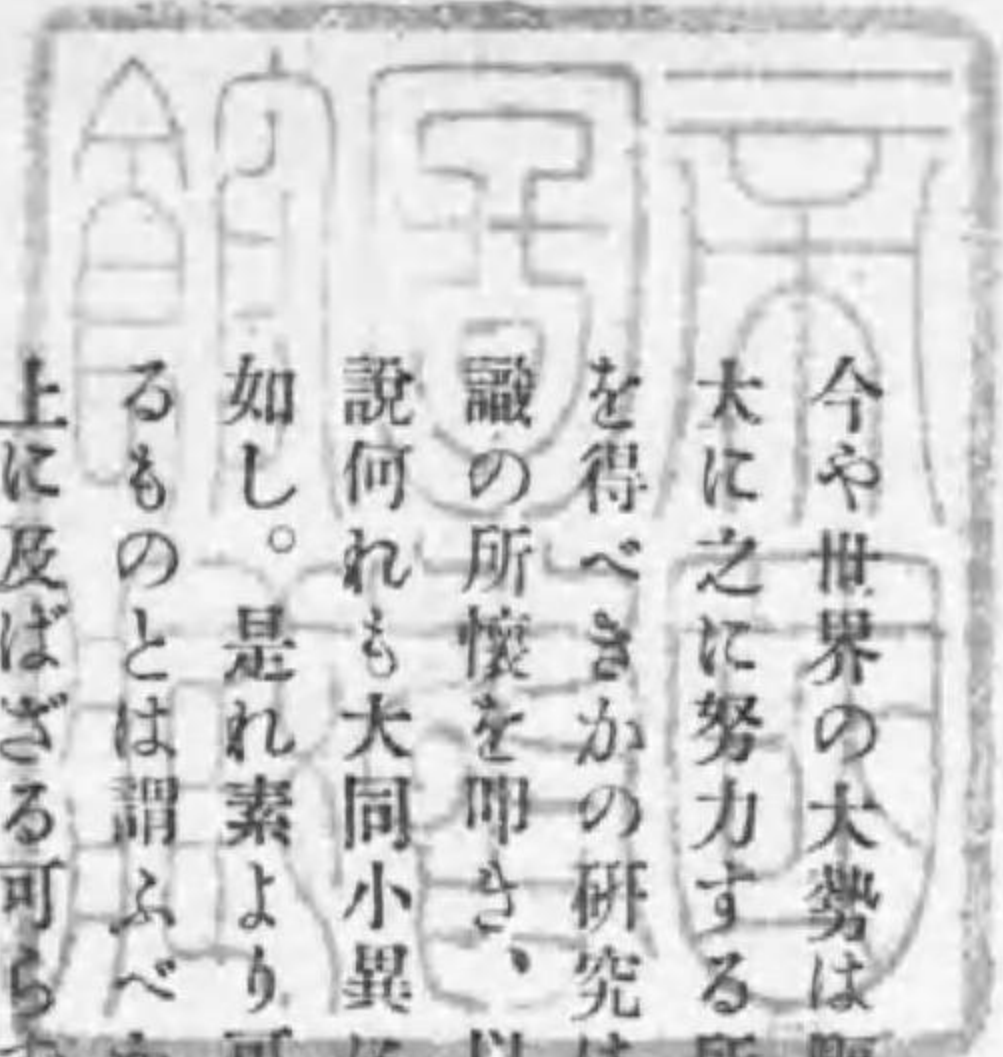 今や世界の大勢は
大に之に努力する所
を得べきかの硏究は
識の所懷を叩き、以
說何れも大同小異に
如し。是れ素より可
るものとは謂ふべか
上に及ばざる可らず